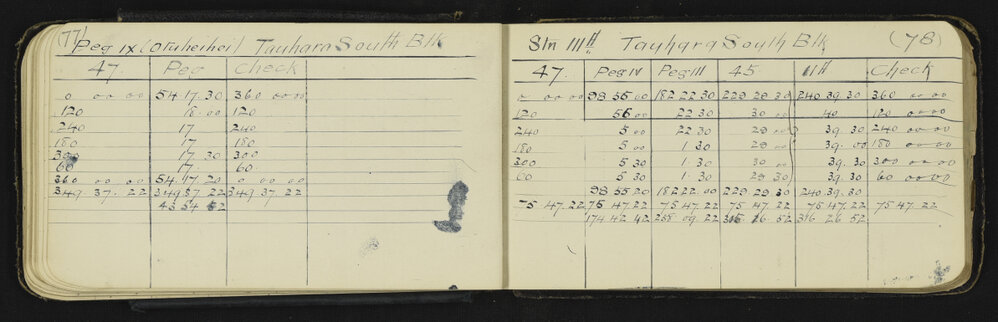 (77)
Peg IX (Otuheihei) Tauhara South Blk
47. Peg Check
0 00 00 54 17.30 360 00 00
120 18.00 120
240 17 240
180 17 180
300 17 30 300
60 17 60
360 00 00 54.17.20 0 00 00
349 37.22 349 37 22 349 37.22
43 54 52
Stn IIIH Tauhara South Blk (78)
47. Peg IV Peg III 45 IIH Check
0 00 00 98 55 00 182 22 30 229 29 30 240 39.30 360 00 00
120 56 00 22 30 30 00 40 120 00 00
240 5 00 22 30 29 00 39.30 240 00 00
180 5 00 1 30 29 00 39.00 180 00 00
300 5 30 1.30 30 39.30 300 00 00
60 5 30 1.30 29 30 39.30 60 00 00
98 55 20 182 22.00 229 29 30 240 39.30
75 47.22 75 47.22 75 47.22 75 47.22 75 47.22 75 47.22
174 42 42 258 09 22 316 26 52